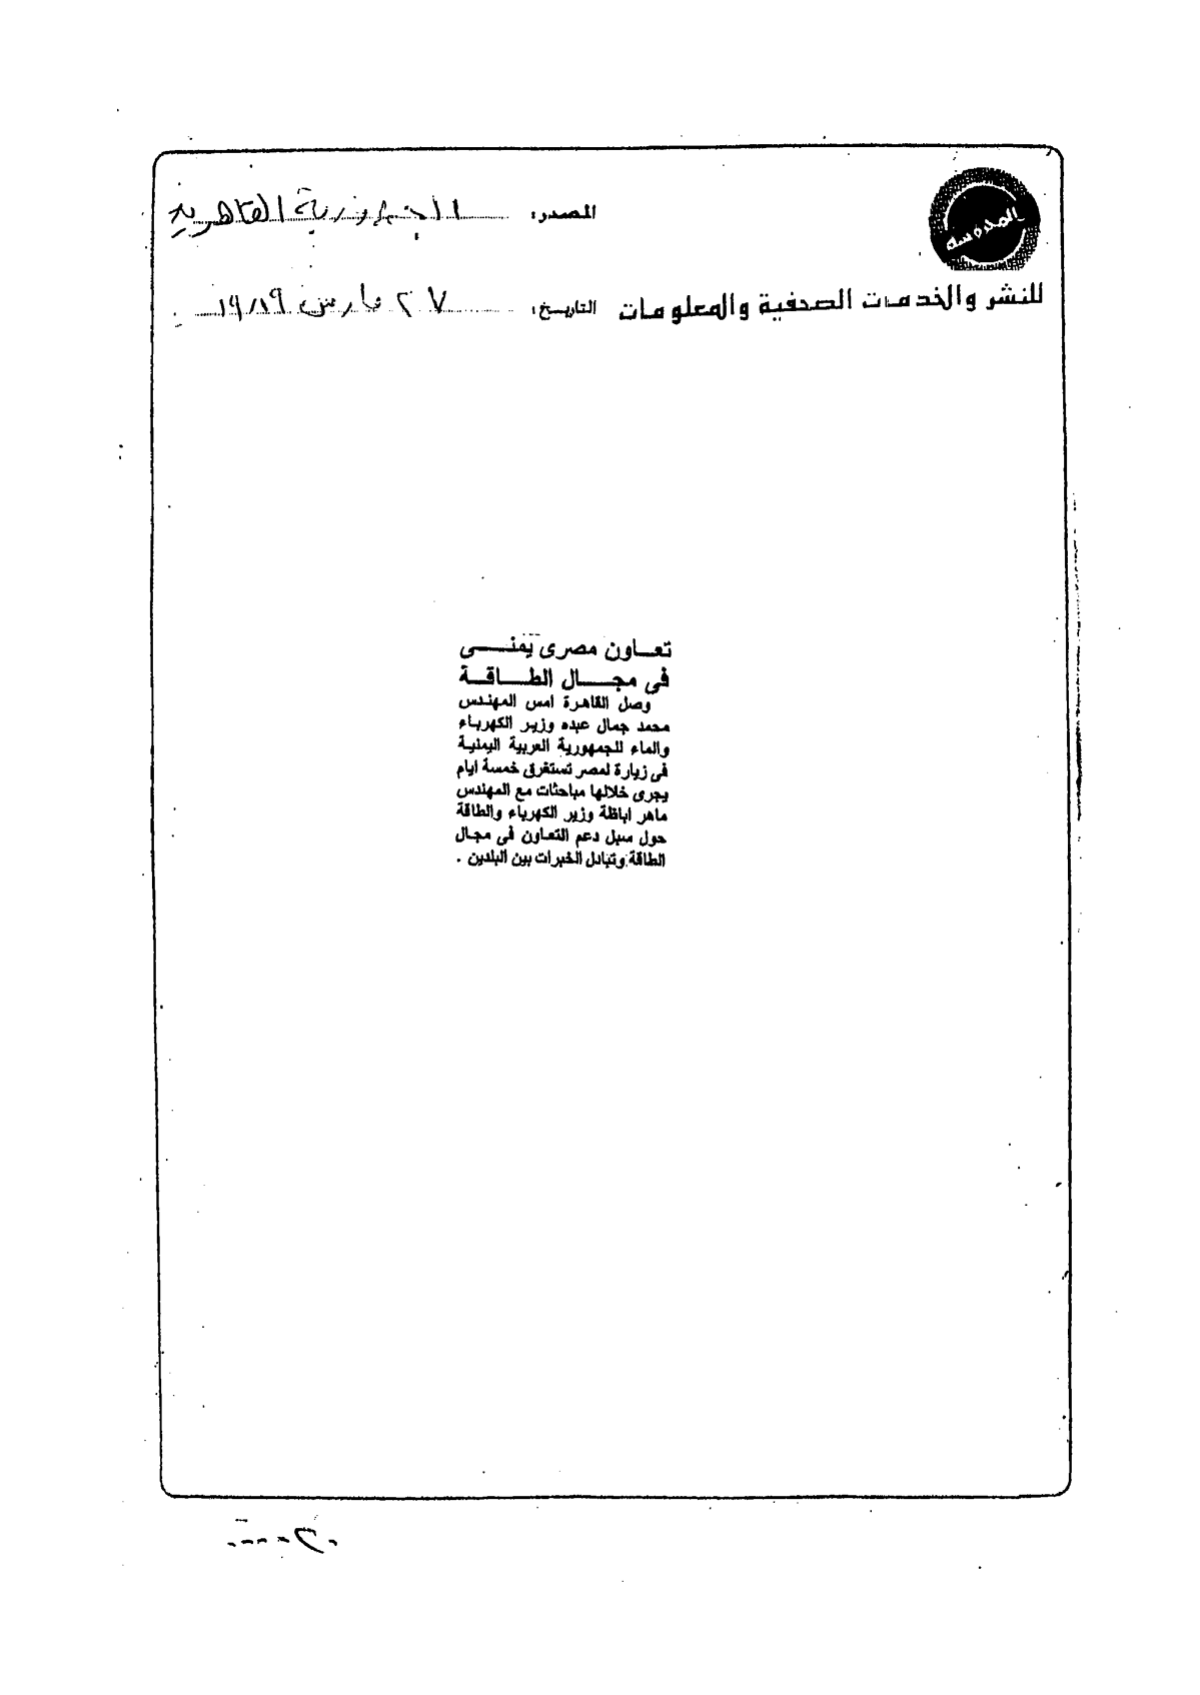 المدرسة
المصدر: الجمهورية القاهرية
للنشر والخدمات الصحفية والمعلومات
التاريخ: ٢٧ مارس ١٩٨٩
تعاون مصرى يمنى
فى مجال الطاقة
وصل القاهرة امس المهندس
محمد جمال عبده وزير الكهرباء
والماء للجمهورية العربية اليمنية
فى زيارة لمصر تستغرق خمسة ايام
يجرى خلالها مباحثات مع المهندس
ماهر اباظة وزير الكهرباء والطاقة
حول سبل دعم التعاون فى مجال
الطاقة وتبادل الخبرات بين البلدين .